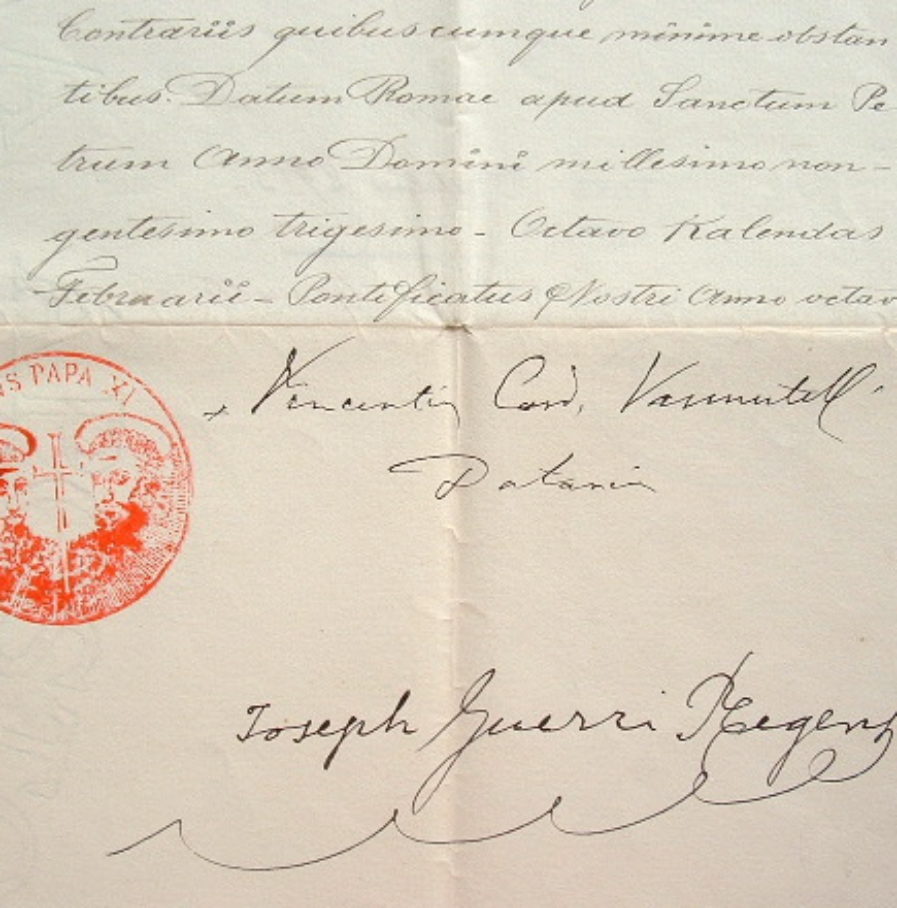 Contrariis quibuscumque minime obstan
tibus. Datum Romae apud Sanctum Pe
trum Anno Domini millesimo non-
gentesimo trigesimo - Octavo Kalendas
Februarii - Pontificatus Nostri Anno octav
US PAPA XI
+ Vincentius Card. Vannutelli
Datarius
Joseph Guerri Regens